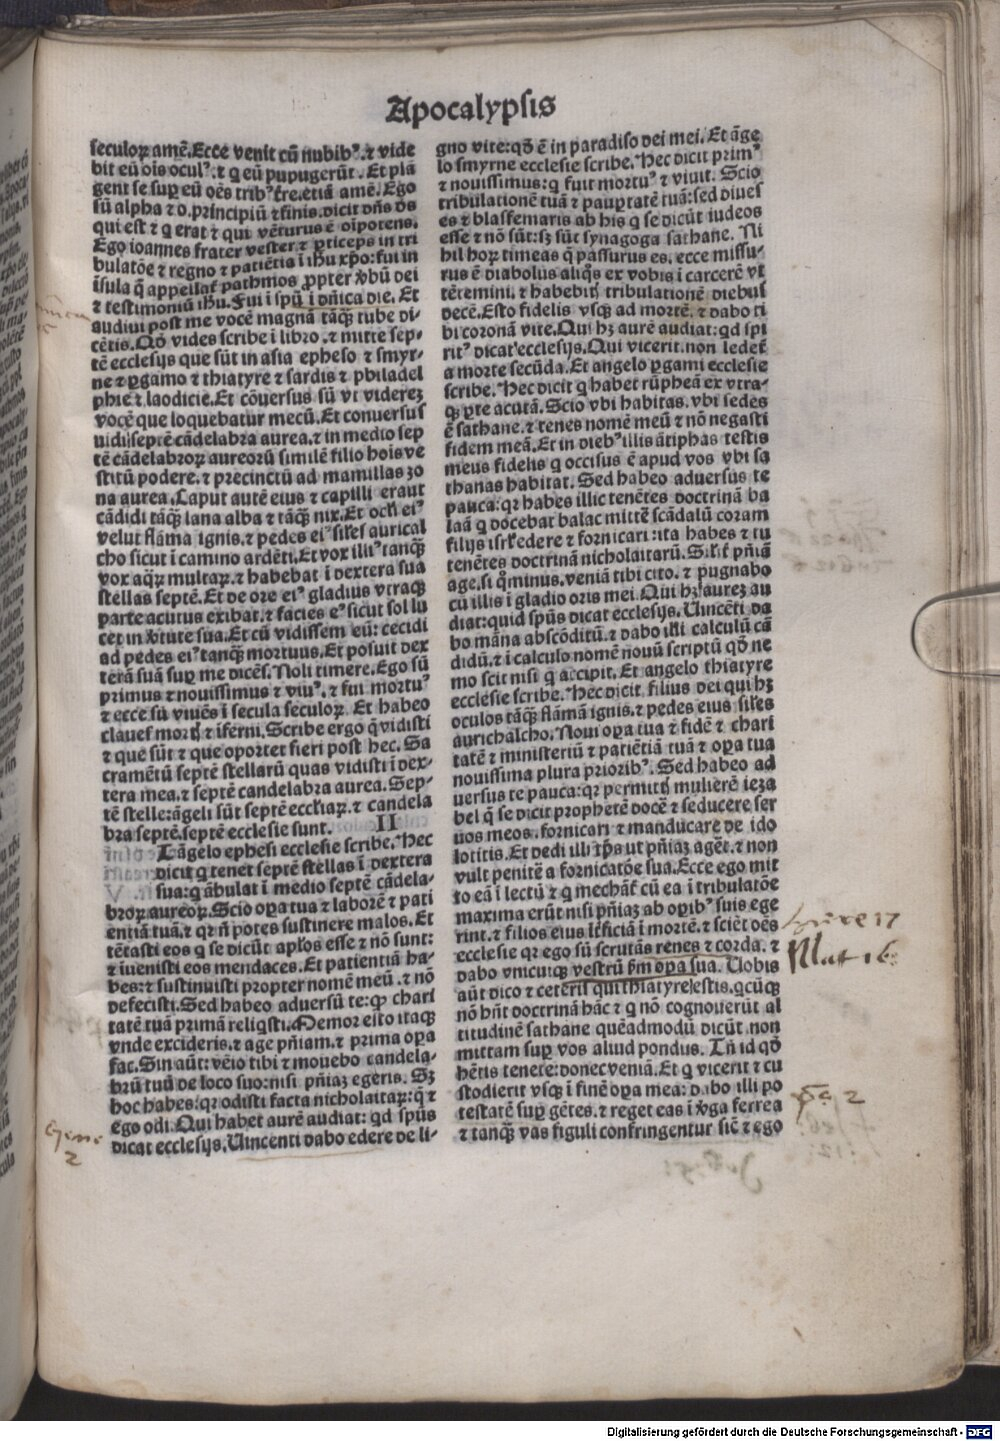 Apocalypsis
seculoꝝ amē. Ecce venit cū nubibꝰ. ⁊ vide
bit eū oīs oculꝰ. ⁊ q eū pupugerūt. Et plā
gent se sup eū oēs tribꝰ t̄re. etiā amē. Ego
sū alpha ⁊ o. principiū ⁊ finis. dicit dn̄s dꝰ
qui est ⁊ q erat ⁊ qui vēturus ē oīpotens.
Ego ioannes frater vester ⁊ ꝑticeps in tri
bulatōe ⁊ regno ⁊ patiētia ī ihū xp̄o: fui in
īsula q̄ appellat᷑ pathmos ꝓpter v̄bū dei
⁊ testimoniū ihū. Fui ī spū ī dn̄ica die. Et
audiui post me vocē magnā tāq̄ꝫ tube di-
cētis. Qd̄ vides scribe ī libro. ⁊ mitte sep-
tē ecclesijs que sūt in asia epheso ⁊ smyr-
ne ⁊ ꝑgamo ⁊ thiatyre ⁊ sardis ⁊ philadel
phie ⁊ laodicie. Et cōuersus sū vt viderez
vocē que loquebatur mecū. Et conuersus
vidi septē cādelabra aurea. ⁊ in medio sep
tē cādelabroꝝ aureorū similē filio hoīs ve
stitū podere. ⁊ precinctū ad mamillas zo
na aurea. Caput autē eius ⁊ capilli eraut
cādidi tāq̄ꝫ lana alba ⁊ tāq̄ꝫ nix. Et oculi eiꝰ
velut flāma ignis. ⁊ pedes eiꝰ sil̄es aurical
cho sicut ī camino ardēti. Et vox illiꝰ tanq̄ꝫ
vox aq̄ꝝ multaꝝ. ⁊ habebat ī dextera sua
stellas septē. Et de ore eiꝰ gladius vtraq̄ꝫ
parte acutus exibat. ⁊ facies eꝰ sicut sol lu
cet in v̄tute sua. Et cū vidissem eū: cecidi
ad pedes eiꝰ tanq̄ꝫ mortuus. Et posuit dex
terā suā sup me dicēs. Noli timere. Ego sū
primus ⁊ nouissimus ⁊ viuꝰ. ⁊ fui mortuꝰ
⁊ ecce sū viuēs ī secula seculoꝝ. Et habeo
claues mortis ⁊ īferni. Scribe ergo q̄ vidisti
⁊ que sūt ⁊ que oportet fieri post hec. Sa
cramētū septē stellarū quas vidisti ī dex-
tera mea. ⁊ septē candelabra aurea. Sep-
tē stelle: āgeli sūt septē eccl̄iaꝝ. ⁊ candela
bra septē. septē ecclesie sunt. II
āgelo ephesi ecclesie scribe. Hec
dicit q tenet septē stellas ī dextera
sua: q ābulat ī medio septē cādela-
broꝝ aureoꝝ. Scio oꝑa tua ⁊ laborē ⁊ pati
entiā tuā. ⁊ qꝛ n̄ potes sustinere malos. Et
tētasti eos q se dicūt apl̄os esse ⁊ nō sunt:
⁊ īuenisti eos mendaces. Et patientiā ha-
bes: ⁊ sustinuisti propter nomē meū. ⁊ nō
defecisti. Sed habeo aduersū te: qꝫ chari
tatē tuā primā reliqsti. Memor esto itaq̄ꝫ
vnde excideris. ⁊ age pn̄iam. ⁊ prima oꝑa
fac. Sin aūt: vēio tibi ⁊ mouebo candela-
brū tuū de loco suo: nisi pn̄iaꝫ egeris. Sꝫ
hoc habes: qꝛ odisti facta nicholaitaꝝ: q̄ ⁊
ego odi. Qui habet aurē audiat: qd spūs
dicat ecclesijs. Uincenti dabo edere de li-
gno vite: qd̄ ē in paradiso dei mei. Et āge
lo smyrne ecclesie scribe. Hec dicit primꝰ
⁊ nouissimus: q fuit mortuꝰ ⁊ viuit. Scio
tribulationē tuā ⁊ pauꝑtatē tuā: sed diues
es ⁊ blasfemaris ab his q se dicūt iudeos
esse ⁊ nō sūt: sꝫ sūt synagoga sathane. Ni
hil hoꝝ timeas q̄ passurus es. ecce missu-
rus ē diabolus aliq̄s ex vobis ī carcerē vt
tētemini. ⁊ habebitꝭ tribulationē diebus
decē. Esto fidelis vsq̄ꝫ ad mortē. ⁊ dabo ti
bi coronā vite. Qui hꝫ aurē audiat: qd spi
ritꝰ dicat ecclesijs. Qui vicerit. non ledet᷑
a morte secūda. Et angelo ꝑgami ecclesie
scribe. Hec dicit q habet rūpheā ex vtra-
q̄ꝫ ꝑte acutā. Scio vbi habitas. vbi sedes
ē sathane. ⁊ tenes nomē meū ⁊ nō negasti
fidem meā. Et in diebꝰ illis ātiphas testis
meus fidelis q occisus ē apud vos vbi sa
thanas habitat. Sed habeo aduersus te
pauca: qꝛ habes illic tenētes doctrinā ba
laā q docebat balac mittē scādalū coram
filijs isrl̄ edere ⁊ fornicari: ita habes ⁊ tu
tenētes doctrinā nicholaitarū. Sil̄r pn̄iā
age. si qo minus. veniā tibi cito. ⁊ pugnabo
cū illis ī gladio oris mei. Qui hꝫ aurez au
diat: quid spūs dicat ecclesijs. Uincēti da
bo māna abscōditū. ⁊ dabo illi calculū cā
didū. ⁊ ī calculo nomē nouū scriptū qd̄ ne
mo scit nisi q accipit. Et angelo thiatyre
ecclesie scribe. Hec dicit filius dei qui hꝫ
oculos tāq̄ꝫ flāmā ignis. ⁊ pedes eius sil̄es
aurichalcho. Noui oꝑa tua ⁊ fidē ⁊ chari
tatē ⁊ ministeriū ⁊ patiētiā tuā ⁊ oꝑa tua
nouissima plura prioribꝰ. Sed habeo ad
uersus te pauca: qꝛ permittꝭ mulierē ieza
bel q̄ se dicit prophetē docē ⁊ seducere ser
uos meos. fornicari ⁊ manducare de ido
lotitis. Et dedi illi tp̄s ut pn̄iaꝫ agēt. ⁊ non
vult penitē a fornicatōe sua. Ecce ego mit
to eā ī lectū ⁊ q mechāt᷑ cū ea ī tribulatōe
maxima erūt nisi pn̄iaꝫ ab oꝑibꝰ suis ege
rint. ⁊ filios eius īt̄ficiā ī mortē. ⁊ sciēt oēs
ecclesie qꝛ ego sū scrutās renes ⁊ corda. ⁊
dabo vnicuiq̄ꝫ vestrū f̄m oꝑa sua. Uobis
aūt dico ⁊ ceteris qui thiatyre estis. qcūq̄ꝫ
nō hn̄t doctrinā hāc ⁊ q nō cognouerūt al
titudinē sathane quēadmodū dicūt non
mittam sup vos aliud pondus. Tn̄ id qd̄
hētis tenete: donec veniā. Et q vicerit ⁊ cu
stodierit vsq̄ꝫ ī finē oꝑa mea: dabo illi po
testatē sup gētes. ⁊ reget eas ī v̄ga ferrea
⁊ tanq̄ꝫ vas figuli confringentur sic̄ ⁊ ego
hiere 17
Matt 16
ps 2
Gene
2
Digitalisierung gefördert durch die Deutsche Forschungsgemeinschaft - DFG